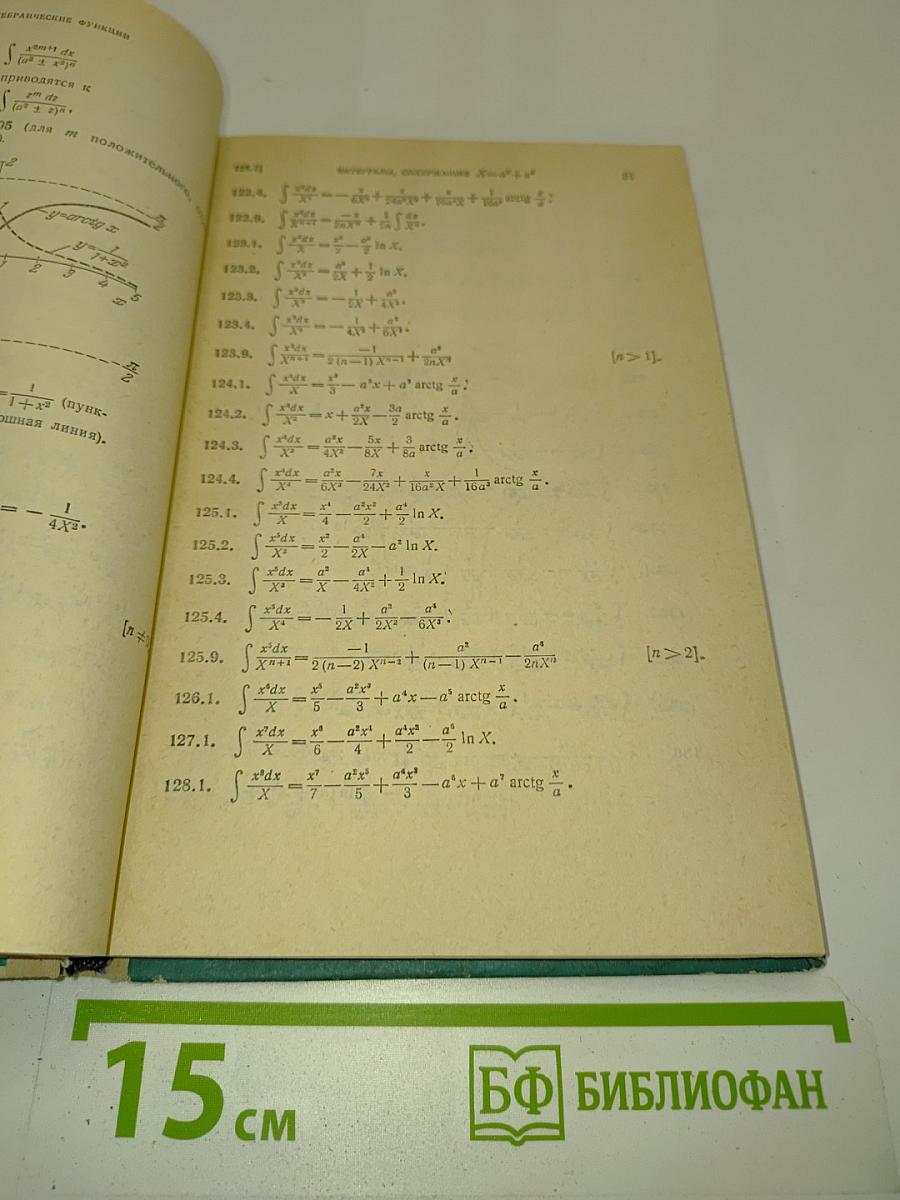 ∫ x²ᵐ⁺¹ dx / (a² ± x²)ⁿ
приводятся к
∫ zᵐ dz / (a² ± z)ⁿ,
05 (для m положительного,
y=arctg x
y = 1/(1+x²)
1 2 3 4 5
x
π/2
= 1/(1+x²) (пунк-
ошная линия).
= − 1/(4X²).
[n ≠
ИНТЕГРАЛЫ, СОДЕРЖАЩИЕ X = a² + x²
122.9. ∫ x²dx/Xⁿ⁺¹ = −x/(2nXⁿ) + 1/(2n) ∫ dx/Xⁿ.
123.1. ∫ x³dx/X = x²/2 − a²/2 ln X.
123.2. ∫ x³dx/X² = a²/(2X) + 1/2 ln X.
123.3. ∫ x³dx/X³ = − 1/(2X) + a²/(4X²).
123.4. ∫ x³dx/X⁴ = − 1/(4X²) + a²/(6X³).
123.9. ∫ x³dx/Xⁿ⁺¹ = −1/(2(n−1)Xⁿ⁻¹) + a²/(2nXⁿ) [n > 1].
124.1. ∫ x⁴dx/X = x³/3 − a²x + a³ arctg x/a.
124.2. ∫ x⁴dx/X² = x + a²x/(2X) − 3a/2 arctg x/a.
124.3. ∫ x⁴dx/X³ = a²x/(4X²) − 5x/(8X) + 3/(8a) arctg x/a.
124.4. ∫ x⁴dx/X⁴ = a²x/(6X³) − 7x/(24X²) + x/(16a²X) + 1/(16a³) arctg x/a.
125.1. ∫ x⁵dx/X = x⁴/4 − a²x²/2 + a⁴/2 ln X.
125.2. ∫ x⁵dx/X² = x²/2 − a⁴/(2X) − a² ln X.
125.3. ∫ x⁵dx/X³ = a²/X − a⁴/(4X²) + 1/2 ln X.
125.4. ∫ x⁵dx/X⁴ = − 1/(2X) + a²/(2X²) − a⁴/(6X³).
125.9. ∫ x⁵dx/Xⁿ⁺¹ = −1/(2(n−2)Xⁿ⁻²) + a²/((n−1)Xⁿ⁻¹) − a⁴/(2nXⁿ) [n > 2].
126.1. ∫ x⁶dx/X = x⁵/5 − a²x³/3 + a⁴x − a⁵ arctg x/a.
127.1. ∫ x⁷dx/X = x⁶/6 − a²x⁴/4 + a⁴x²/2 − a⁶/2 ln X.
128.1. ∫ x⁸dx/X = x⁷/7 − a²x⁵/5 + a⁴x³/3 − a⁶x + a⁷ arctg x/a.
15 см
БФ БИБЛИОФАН